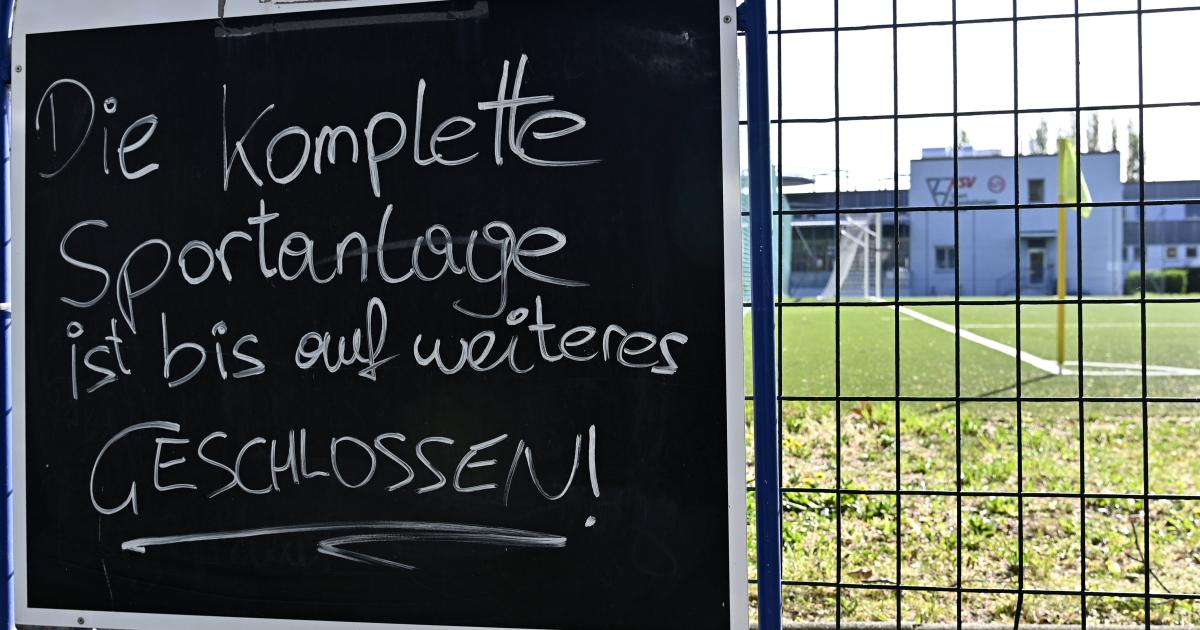 Die komplette
Sportanlage
ist bis auf weiteres
GESCHLOSSEN!
SV